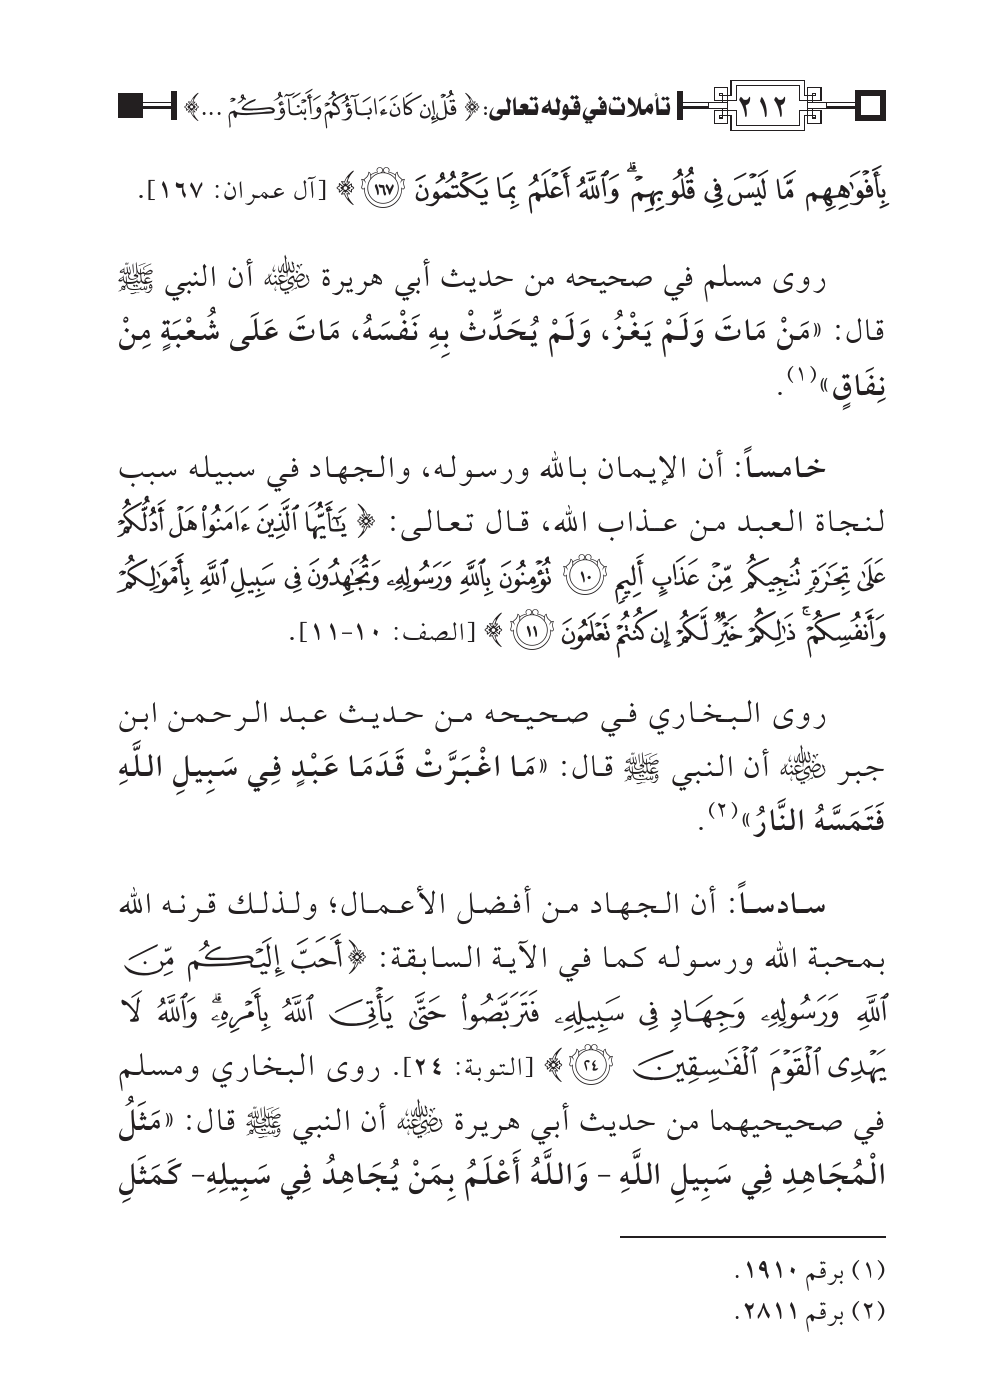 ٢١٢ تأملات في قوله تعالى: ﴿ قُلْ إِن كَانَ ءَابَآؤُكُمْ وَأَبْنَآؤُكُمْ ... ﴾
بِأَفْوَٰهِهِم مَّا لَيْسَ فِى قُلُوبِهِمْ ۗ وَٱللَّهُ أَعْلَمُ بِمَا يَكْتُمُونَ ﴿١٦٧﴾ ﴾ [آل عمران: ١٦٧].
روى مسلم في صحيحه من حديث أبي هريرة رضي الله عنه أن النبي ﷺ
قال: «مَنْ مَاتَ وَلَمْ يَغْزُ، وَلَمْ يُحَدِّثْ بِهِ نَفْسَهُ، مَاتَ عَلَى شُعْبَةٍ مِنْ
نِفَاقٍ»(١).
خامساً: أن الإيمان بالله ورسوله، والجهاد في سبيله سبب
لنجاة العبد من عذاب الله، قال تعالى: ﴿ يَٰٓأَيُّهَا ٱلَّذِينَ ءَامَنُوا۟ هَلْ أَدُلُّكُمْ
عَلَىٰ تِجَٰرَةٍ تُنجِيكُم مِّنْ عَذَابٍ أَلِيمٍ ﴿١٠﴾ تُؤْمِنُونَ بِٱللَّهِ وَرَسُولِهِۦ وَتُجَٰهِدُونَ فِى سَبِيلِ ٱللَّهِ بِأَمْوَٰلِكُمْ
وَأَنفُسِكُمْ ۚ ذَٰلِكُمْ خَيْرٌ لَّكُمْ إِن كُنتُمْ تَعْلَمُونَ ﴿١١﴾ ﴾ [الصف: ١٠-١١].
روى البخاري في صحيحه من حديث عبد الرحمن ابن
جبر رضي الله عنه أن النبي ﷺ قال: «مَا اغْبَرَّتْ قَدَمَا عَبْدٍ فِي سَبِيلِ اللَّهِ
فَتَمَسَّهُ النَّارُ»(٢).
سادساً: أن الجهاد من أفضل الأعمال؛ ولذلك قرنه الله
بمحبة الله ورسوله كما في الآية السابقة: ﴿أَحَبَّ إِلَيْكُم مِّنَ
ٱللَّهِ وَرَسُولِهِۦ وَجِهَادٍ فِى سَبِيلِهِۦ فَتَرَبَّصُوا۟ حَتَّىٰ يَأْتِىَ ٱللَّهُ بِأَمْرِهِۦ ۗ وَٱللَّهُ لَا
يَهْدِى ٱلْقَوْمَ ٱلْفَٰسِقِينَ ﴿٢٤﴾ ﴾ [التوبة: ٢٤]. روى البخاري ومسلم
في صحيحيهما من حديث أبي هريرة رضي الله عنه أن النبي ﷺ قال: «مَثَلُ
الْمُجَاهِدِ فِي سَبِيلِ اللَّهِ – وَاللَّهُ أَعْلَمُ بِمَنْ يُجَاهِدُ فِي سَبِيلِهِ– كَمَثَلِ
(١) برقم ١٩١٠.
(٢) برقم ٢٨١١.